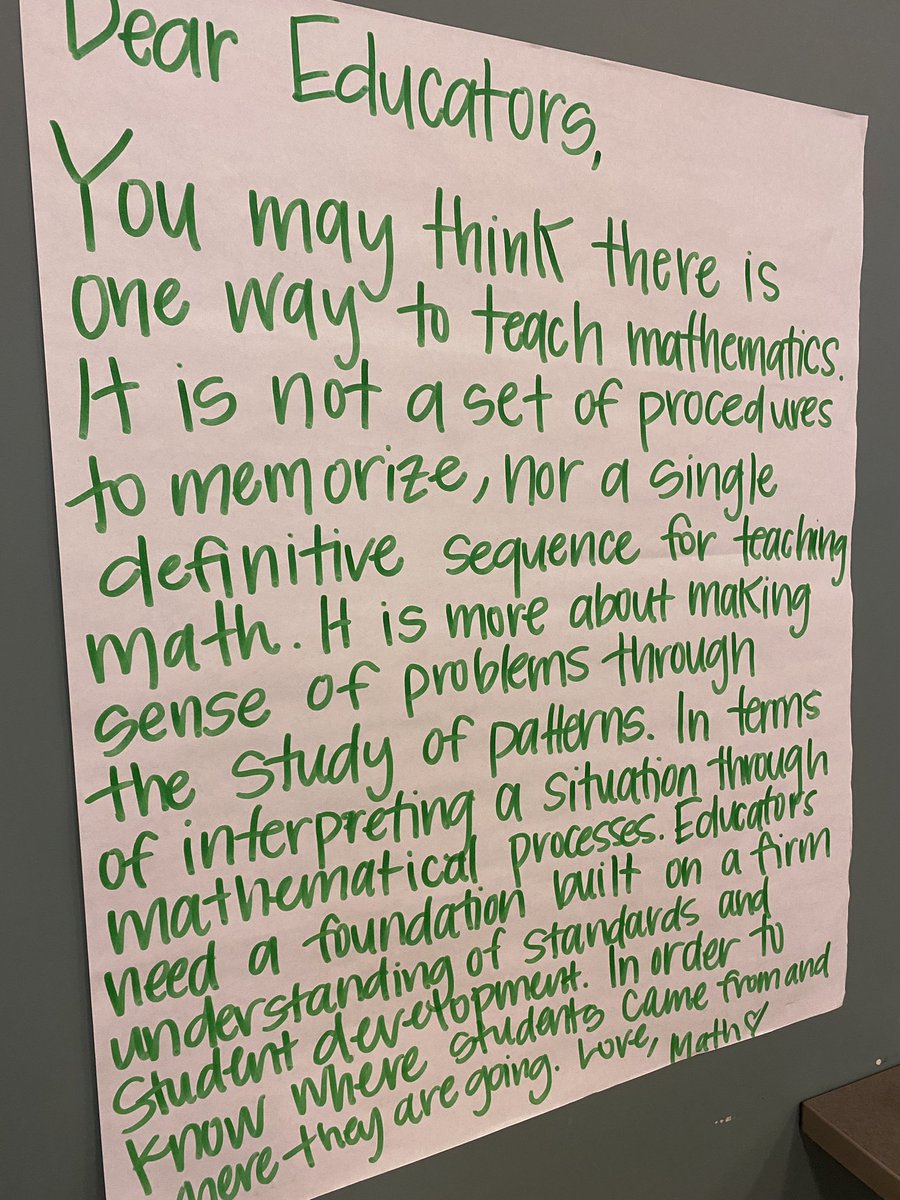 Dear Educators,
You may think there is
one way to teach mathematics.
It is not a set of procedures
to memorize, nor a single
definitive sequence for teaching
math. It is more about making
sense of problems through
the study of patterns. In terms
of interpreting a situation through
mathematical processes. Educators
need a foundation built on a firm
understanding of standards and
student development. In order to
know where students came from and
where they are going. Love, Math♡